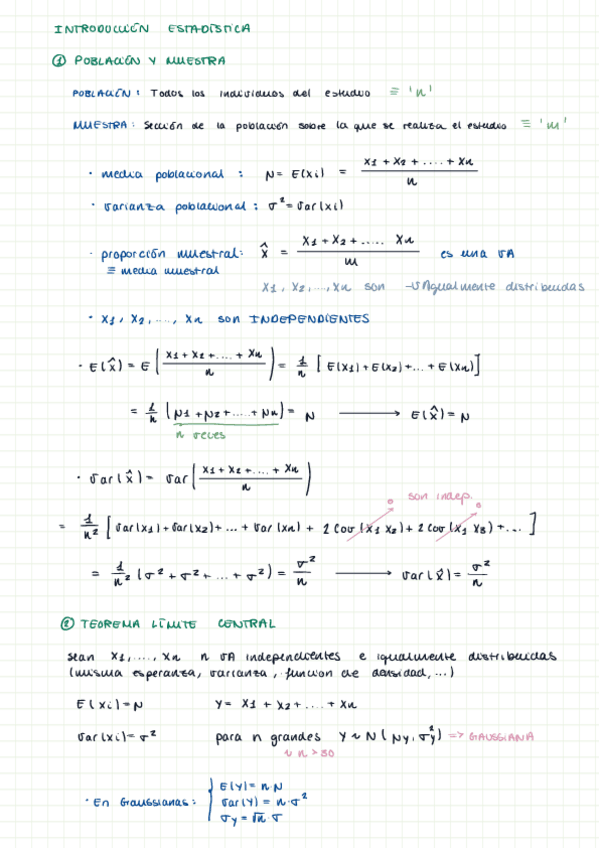 INTRODUCCIÓN ESTADÍSTICA
① POBLACIÓN Y MUESTRA
POBLACIÓN: Todos los individuos del estudio ≡ 'n'
MUESTRA: Sección de la población sobre la que se realiza el estudio ≡ 'm'
· media poblacional : N = E(xi) = (x1 + x2 + .... + xn) / n
· varianza poblacional : σ² = Var(xi)
· proporción muestral: x̂ = (x1 + x2 + ..... xn) / m es una VA
≡ media muestral
x1, x2, ..., xn son →VAgualmente distribuidas
· x1, x2, ...., xn son INDEPENDIENTES
· E(x̂) = E((x1 + x2 + .... + xn) / n) = 1/n [E(x1) + E(x2) + ... + E(xn)]
= 1/n (N1 + N2 + ..... + Nn) = N → E(x̂) = N
n veces
· Var(x̂) = Var((x1 + x2 + .... + xn) / n)
o son indep. o
= 1/n² [Var(x1) + Var(x2) + ... + Var(xn) + 2 Cov(x1 x2) + 2 Cov(x1 x3) + ... ]
= 1/n² (σ² + σ² + ... + σ²) = σ²/n → Var(x̂) = σ²/n
② TEOREMA LÍMITE CENTRAL
sean x1, ...., xn n VA independientes e igualmente distribuidas
(misma esperanza, varianza, funcion de densidad, ...)
E(xi) = N Y = x1 + x2 + .... + xn
Var(xi) = σ² para n grandes Y ~ N(Ny, σy²) => GAUSSIANA
~ n > 30
· En Gaussianas: { E(Y) = n·N
Var(Y) = n·σ²
σy = √n·σ